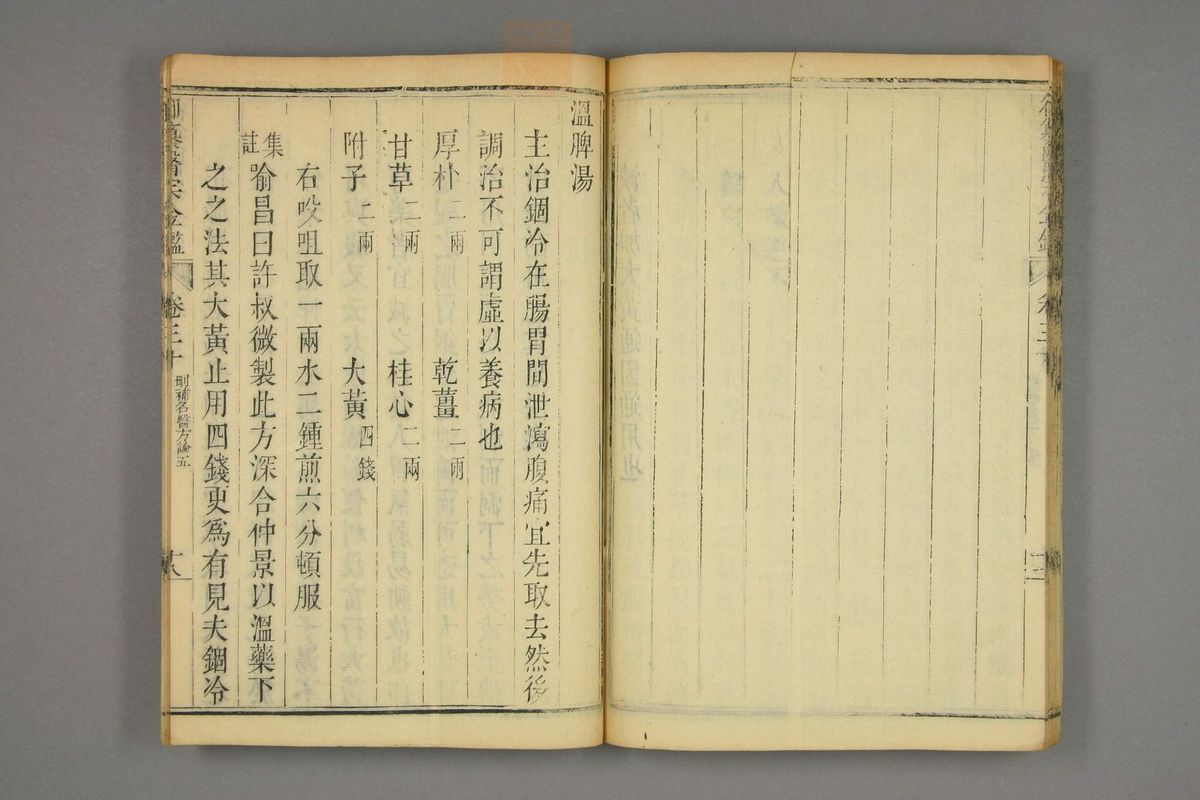 溫脾湯
主治錮冷在腸胃間泄瀉腹痛宜先取去然後
調治不可謂虛以養病也
厚朴二兩 乾薑二兩
甘草二兩 桂心二兩
附子二兩 大黃四錢
右咬咀取一兩水二鍾煎六分頓服
集註 喻昌曰許叔微製此方深合仲景以溫藥下
之之法其大黃止用四錢更爲有見夫錮冷
御纂醫宗金鑑 卷三十 刪補名醫方論五 十八